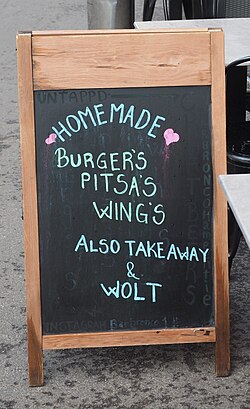 UNTAPPD
HOMEMADE
BURGER'S
PITSA'S
WING'S
ALSO TAKEAWAY
&
WOLT
INSTAGRAM